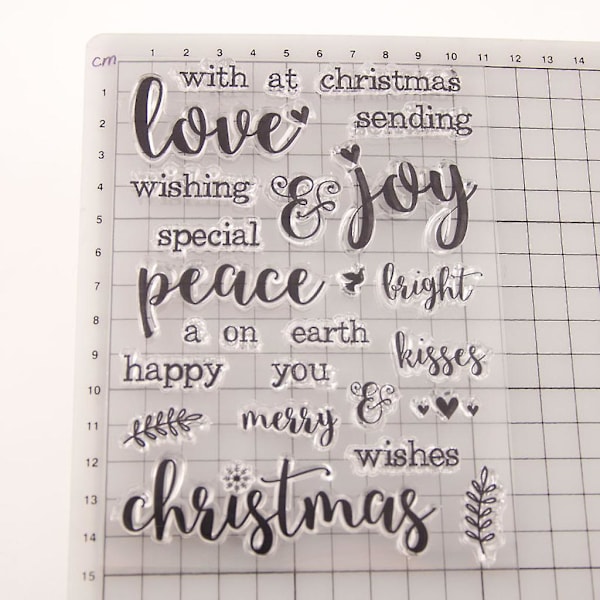 cm
1 2 3 4 5 6 7 8 9 10 11 12 13 14
with at christmas
love
sending
wishing & joy
special
peace
bright
a on earth
kisses
happy you
&
merry
wishes
christmas
1
2
3
4
5
6
7
8
9
10
11
12
13
14
15